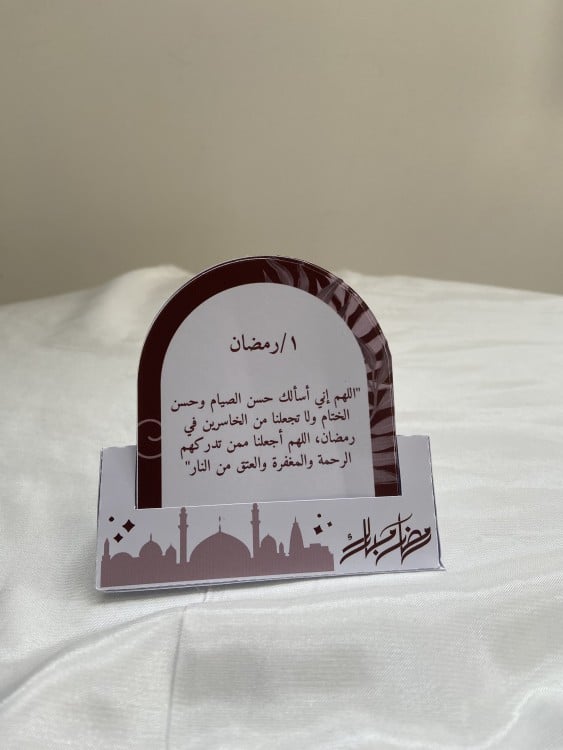 ١/رمضان
"اللهم إني أسألك حسن الصيام وحسن
الختام ولا تجعلنا من الخاسرين في
رمضان، اللهم أجعلنا ممن تدركهم
الرحمة والمغفرة والعتق من النار"
رمضان مبارك